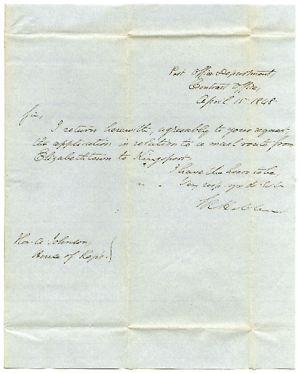 Post Office Department,
Contract Office,
April 15 1848
Sir,
I return herewith, agreeably to your request,
the application in relation to a mail route from
Elizabethtown to Kingsport.
I have the honor to be
Very resp. yr. ob. 
Hon. A Johnson,
House of Reps.